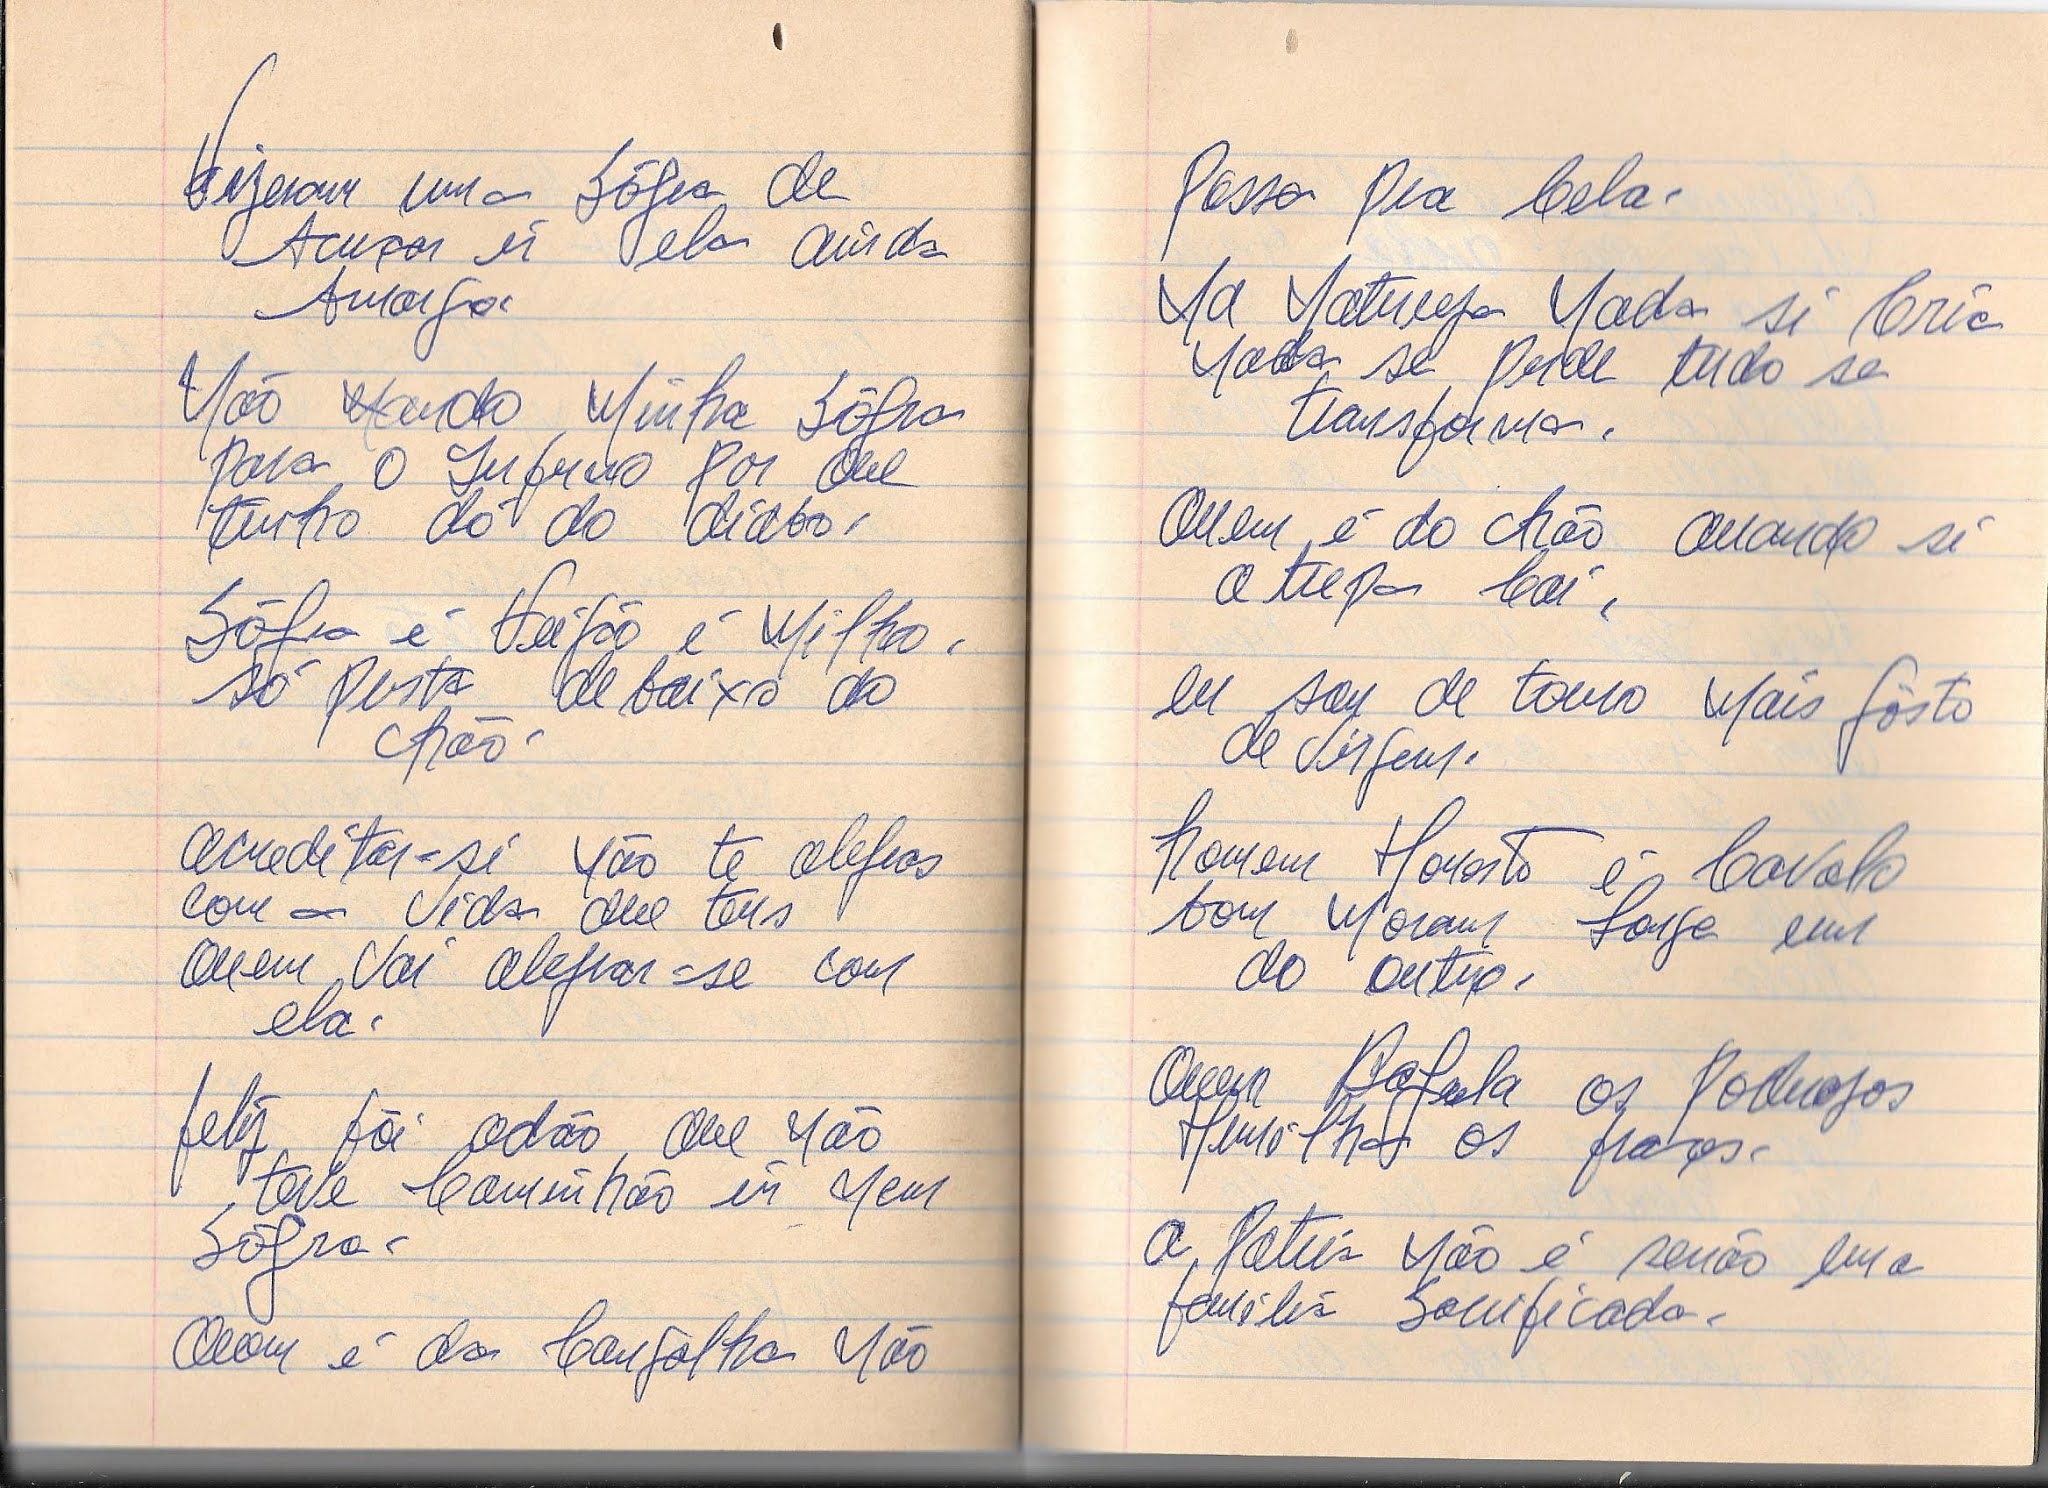 Fizeram uma Sôgra de
Açuçar ei ela ainda
Amarga.
Não Mando Minha Sôgra
para o Inferno por que
tenho dó do diabo.
Sôgra é Feijão é Milho.
só presta debaixo do
chão.
acreditar-si não te alegras
com a vida que tens
quem vai alegrar-se com
ela.
feliz fôi adão que não
teve Caminhão ei nem
Sôgra.
quem é da Cangalha não
possa pra Cela.
Na Natureza Nada si Cria
Nada se perde tudo se
transforma.
quem é do chão quando si
a trepa Cai.
eu sou de touro Mais gôsto
de virgem.
homem Honesto é Cavalo
bom Moram longe um
do outro.
quem os Poderosos
Humilha os fracos.
a Patria não é senão uma
familia